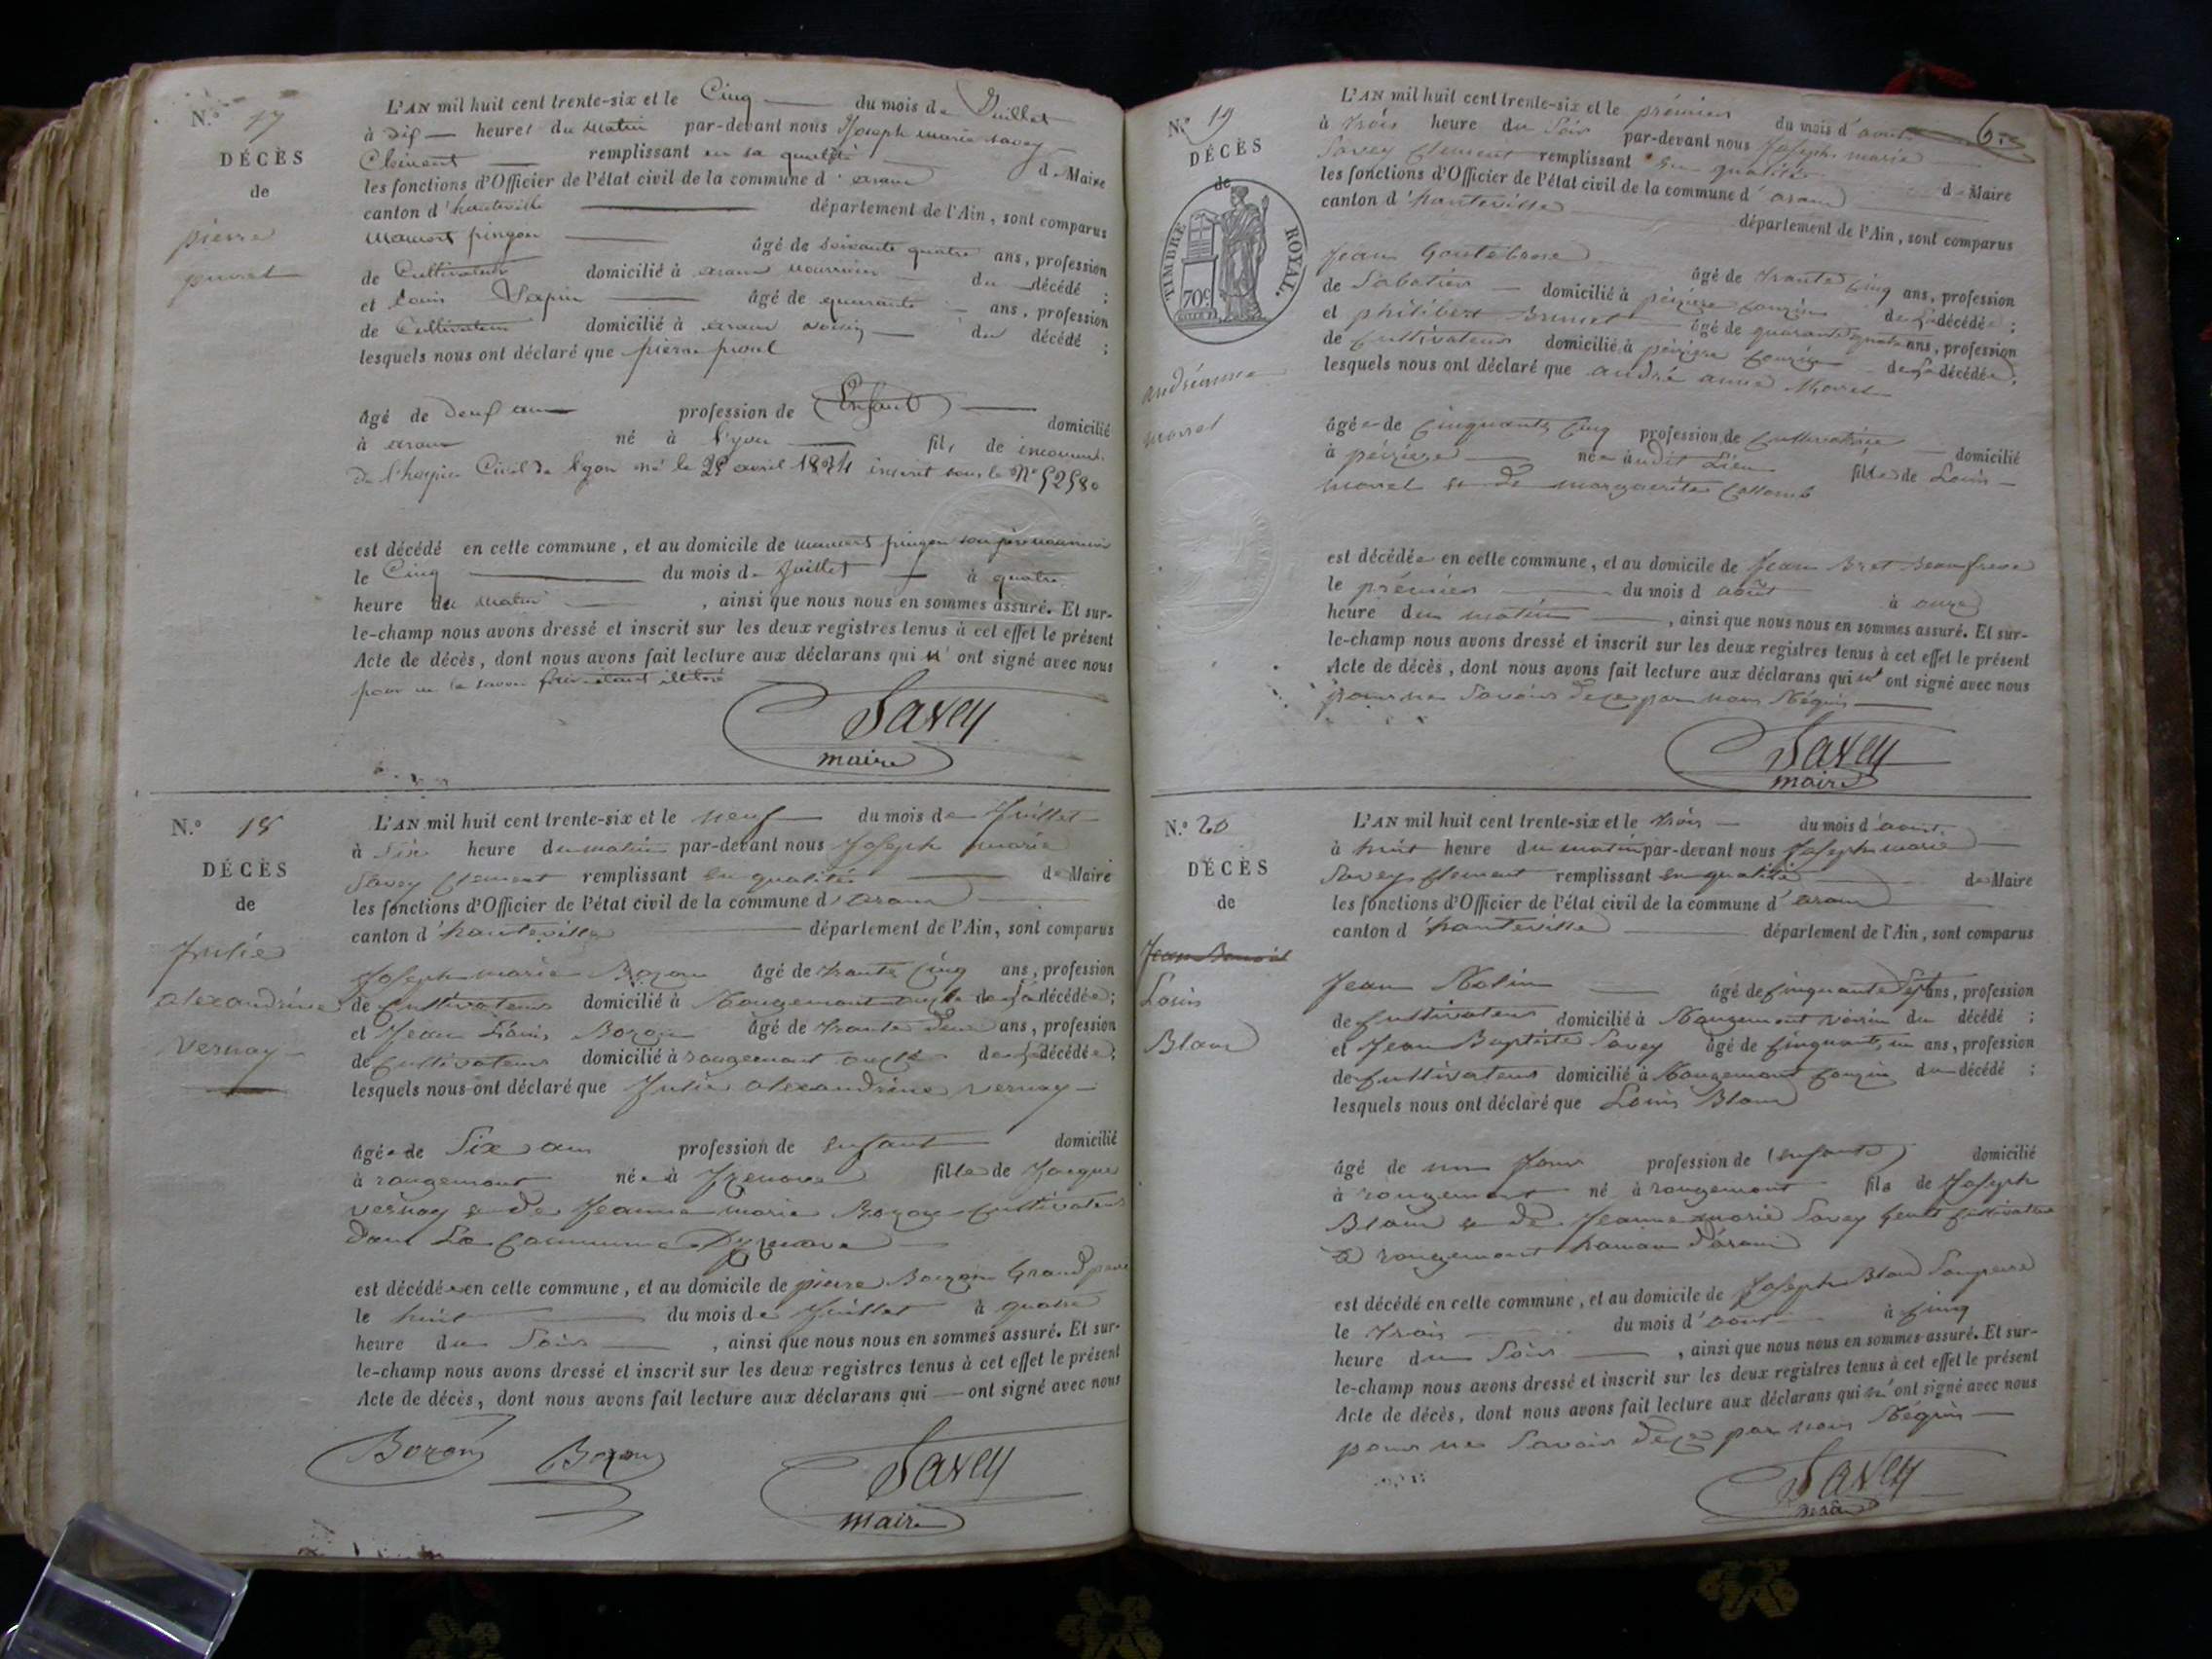 N.° 17
DÉCÈS
de
pierre
L'AN mil huit cent trente-six et le Cinq du mois de Juillet
à dix heures du matin par-devant nous Joseph marie savey
Clément remplissant en sa qualité de Maire
les fonctions d'Officier de l'état civil de la commune d'aranc
canton d'hauteville département de l'Ain, sont comparus
pingon âgé de soixante quatre ans, profession
de Cultivateur domicilié à aranc nourricier du décédé ;
et Louis âgé de quarante ans, profession
de Cultivateur domicilié à aranc voisin du décédé ;
lesquels nous ont déclaré que pierre
âgé de deux ans profession de (Enfant) domicilié
à aranc né à lyon fils de inconnu
De l'hospice Civil de lyon né le avril inscrit sous le N°
est décédé en cette commune, et au domicile de pingon son père nourricier
le Cinq du mois de Juillet à quatre
heure du matin , ainsi que nous nous en sommes assuré. Et sur-
le-champ nous avons dressé et inscrit sur les deux registres tenus à cet effet le présent
Acte de décès, dont nous avons fait lecture aux déclarans qui n'ont signé avec nous
pour ne le savoir
Savey
maire
N.° 18
DÉCÈS
de
Julie
alexandrine
Vernay
L'AN mil huit cent trente-six et le neuf du mois de Juillet
à six heure du matin par-devant nous Joseph marie
Savey Clement remplissant en qualité de Maire
les fonctions d'Officier de l'état civil de la commune d'aranc
canton d'hauteville département de l'Ain, sont comparus
Joseph marie Bozon âgé de trante Cinq ans, profession
de Cultivateur domicilié à Rougemont oncle de la décédée ;
et Jean Louis Bozon âgé de trante deux ans, profession
de Cultivateur domicilié à rougemont oncle de la décédée ;
lesquels nous ont déclaré que Julie alexandrine vernay
âgée de Six ans profession de enfant domicilié
à rougemont née à Izenave fille de Jacque
vernay et de Jeanne marie Bozon Cultivateur
dans La Commune D'yzenave
est décédée en cette commune, et au domicile de pierre Bozon Grand pere
le huit du mois de Juillet à quatre
heure du Soir , ainsi que nous nous en sommes assuré. Et sur-
le-champ nous avons dressé et inscrit sur les deux registres tenus à cet effet le présent
Acte de décès, dont nous avons fait lecture aux déclarans qui ont signé avec nous
Bozon Bozon Savey
maire
N.° 19
DÉCÈS
de
TIMBRE ROYAL.
70c
andréanne
morel
L'AN mil huit cent trente-six et le prémier du mois d'aout
à trois heure du Soir par-devant nous Joseph marie
Savey Clement remplissant en qualité de Maire
les fonctions d'Officier de l'état civil de la commune d'aranc
canton d'hauteville département de l'Ain, sont comparus
Jean âgé de trante Cinq ans, profession
de Sabotier domicilié à Couzin de la décédée ;
et philibert Brunet âgé de quarante quatre ans, profession
de Cultivateur domicilié à Couzin de la décédée ;
lesquels nous ont déclaré que andré anne Morel
âgée de Cinquante Cinq profession de Cultivatrice domicilié
à née audit Lieu fille de Louis
morel et de marguerite Collomb
est décédée en cette commune, et au domicile de Jean Bret Beaufrere
le prémier du mois d'août à onze
heure du matin , ainsi que nous nous en sommes assuré. Et sur-
le-champ nous avons dressé et inscrit sur les deux registres tenus à cet effet le présent
Acte de décès, dont nous avons fait lecture aux déclarans qui n'ont signé avec nous
pour ne Savoir de ce par nous Réquis
Savey
maire
N.° 20
DÉCÈS
de
Louis
Blanc
L'AN mil huit cent trente-six et le trois du mois d'aout
à huit heure du matin par-devant nous Joseph marie
Savey Clement remplissant en qualité de Maire
les fonctions d'Officier de l'état civil de la commune d'aranc
canton d'hauteville département de l'Ain, sont comparus
Jean Molin âgé de Cinquante Sept ans, profession
de Cultivateur domicilié à Rougemont voisin du décédé ;
et Jean Baptiste Savey âgé de Cinquante un ans, profession
de Cultivateur domicilié à Rougemont Couzin du décédé ;
lesquels nous ont déclaré que Louis Blanc
âgé de un Jour profession de (enfant) domicilié
à rougemont né à rougemont fils de Joseph
Blanc et de Jeanne marie Savey Cultivateur
à rougemont hameau d'aranc
est décédé en cette commune, et au domicile de Joseph Blanc Son pere
le trois du mois d'aout à Cinq
heure du Soir , ainsi que nous nous en sommes assuré. Et sur-
le-champ nous avons dressé et inscrit sur les deux registres tenus à cet effet le présent
Acte de décès, dont nous avons fait lecture aux déclarans qui n'ont signé avec nous
pour ne Savoir de ce par nous Réquis
Savey
maire